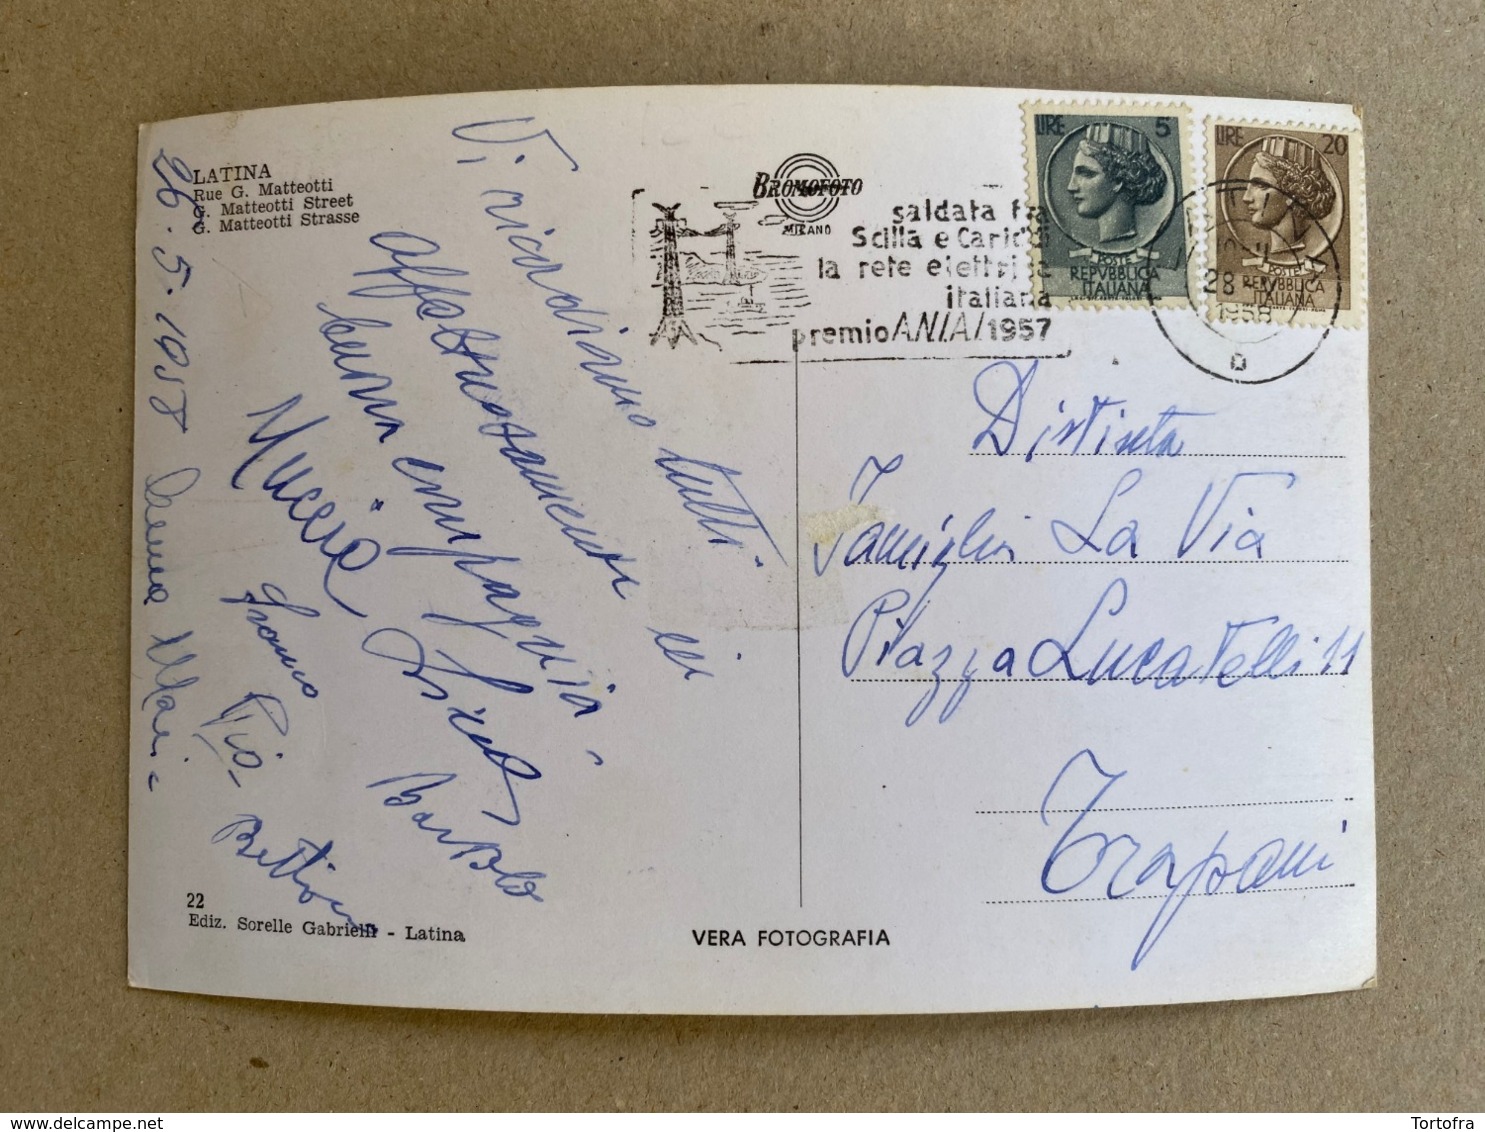 LATINA
Rue G. Matteotti
G. Matteotti Street
G. Matteotti Strasse
26.5.1958
Vi ricordiamo tutti
affettuosamente in
buona compagnia
Nuccia
Franco Pio
Bettina
22
Ediz. Sorelle Gabrielli - Latina
VERA FOTOGRAFIA
BROMOFOTO
MILANO
saldata fra
Scilla e Cariddi
la rete elettrica
italiana
premio A.N.I.A.I 1957
LIRE 5
POSTE
REPVBBLICA
ITALIANA
LIRE 20
POSTE
REPVBBLICA
ITALIANA
28
1958
D
Distinta
Famiglia La Via
Piazza Lucatelli 11
Trapani
Tortofra